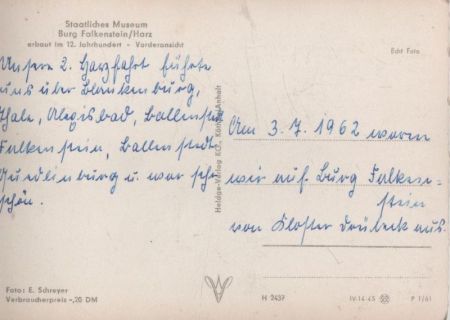 Staatliches Museum
Burg Falkenstein/Harz
erbaut im 12. Jahrhundert - Vorderansicht
Echt Foto
Unsere 2. Harzfahrt führte
uns über Blankenburg,
Thale, Alexisbad, Ballenstedt
Falkenstein, Ballenstedt
Quedlinburg u. war sehr
schön.
Heldge-Verlag KG., Köthen/Anhalt
Am 3. 7. 1962 waren
wir auf Burg Falken-
stein
von Kloster Drübeck aus.
Foto: E. Schreyer
Verbraucherpreis -,20 DM
H 2437
IV-14-45
P 1/61